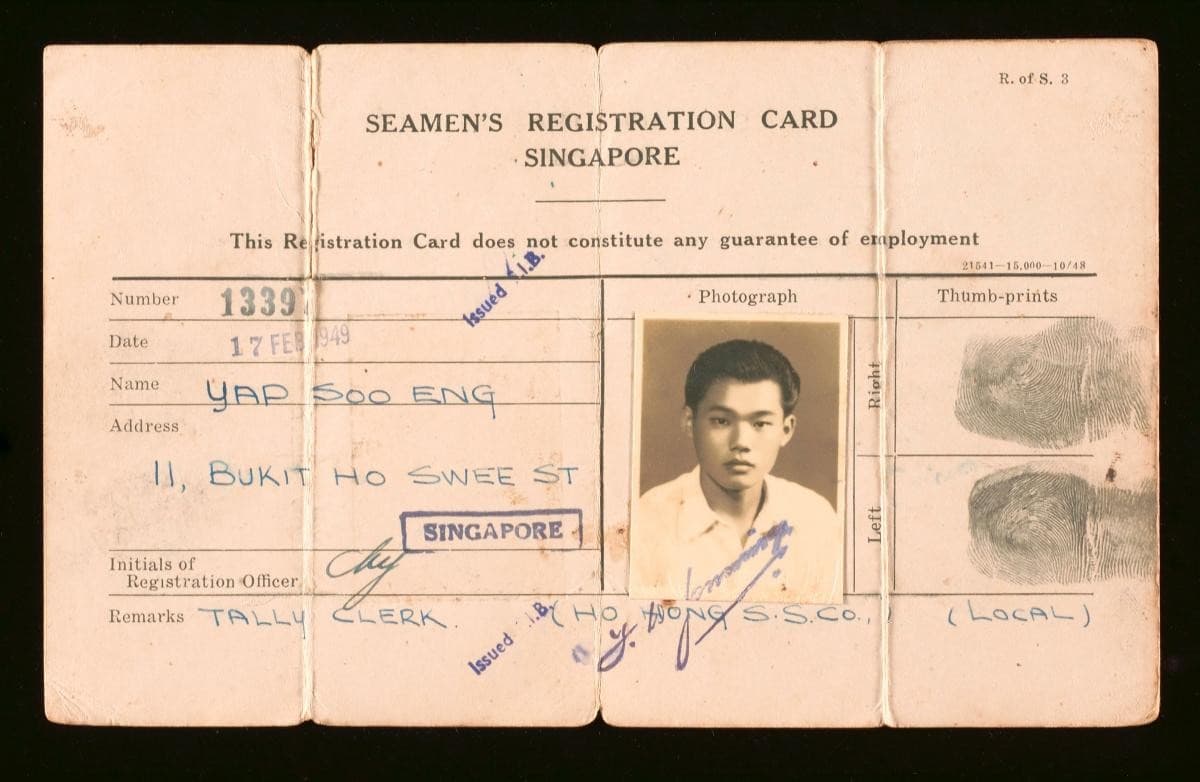 R. of S. 3
SEAMEN'S REGISTRATION CARD
SINGAPORE
This Registration Card does not constitute any guarantee of employment
21541—15,000—10/48
Number 1339
Photograph
Thumb-prints
Issued I.B.
Date 17 FEB 1949
Name YAP SOO ENG
Right
Address
11, BUKIT HO SWEE ST
SINGAPORE
Left
Initials of
Registration Officer
Remarks TALLY CLERK. (HO HONG S.S.Co., (LOCAL)
Issued I.B.